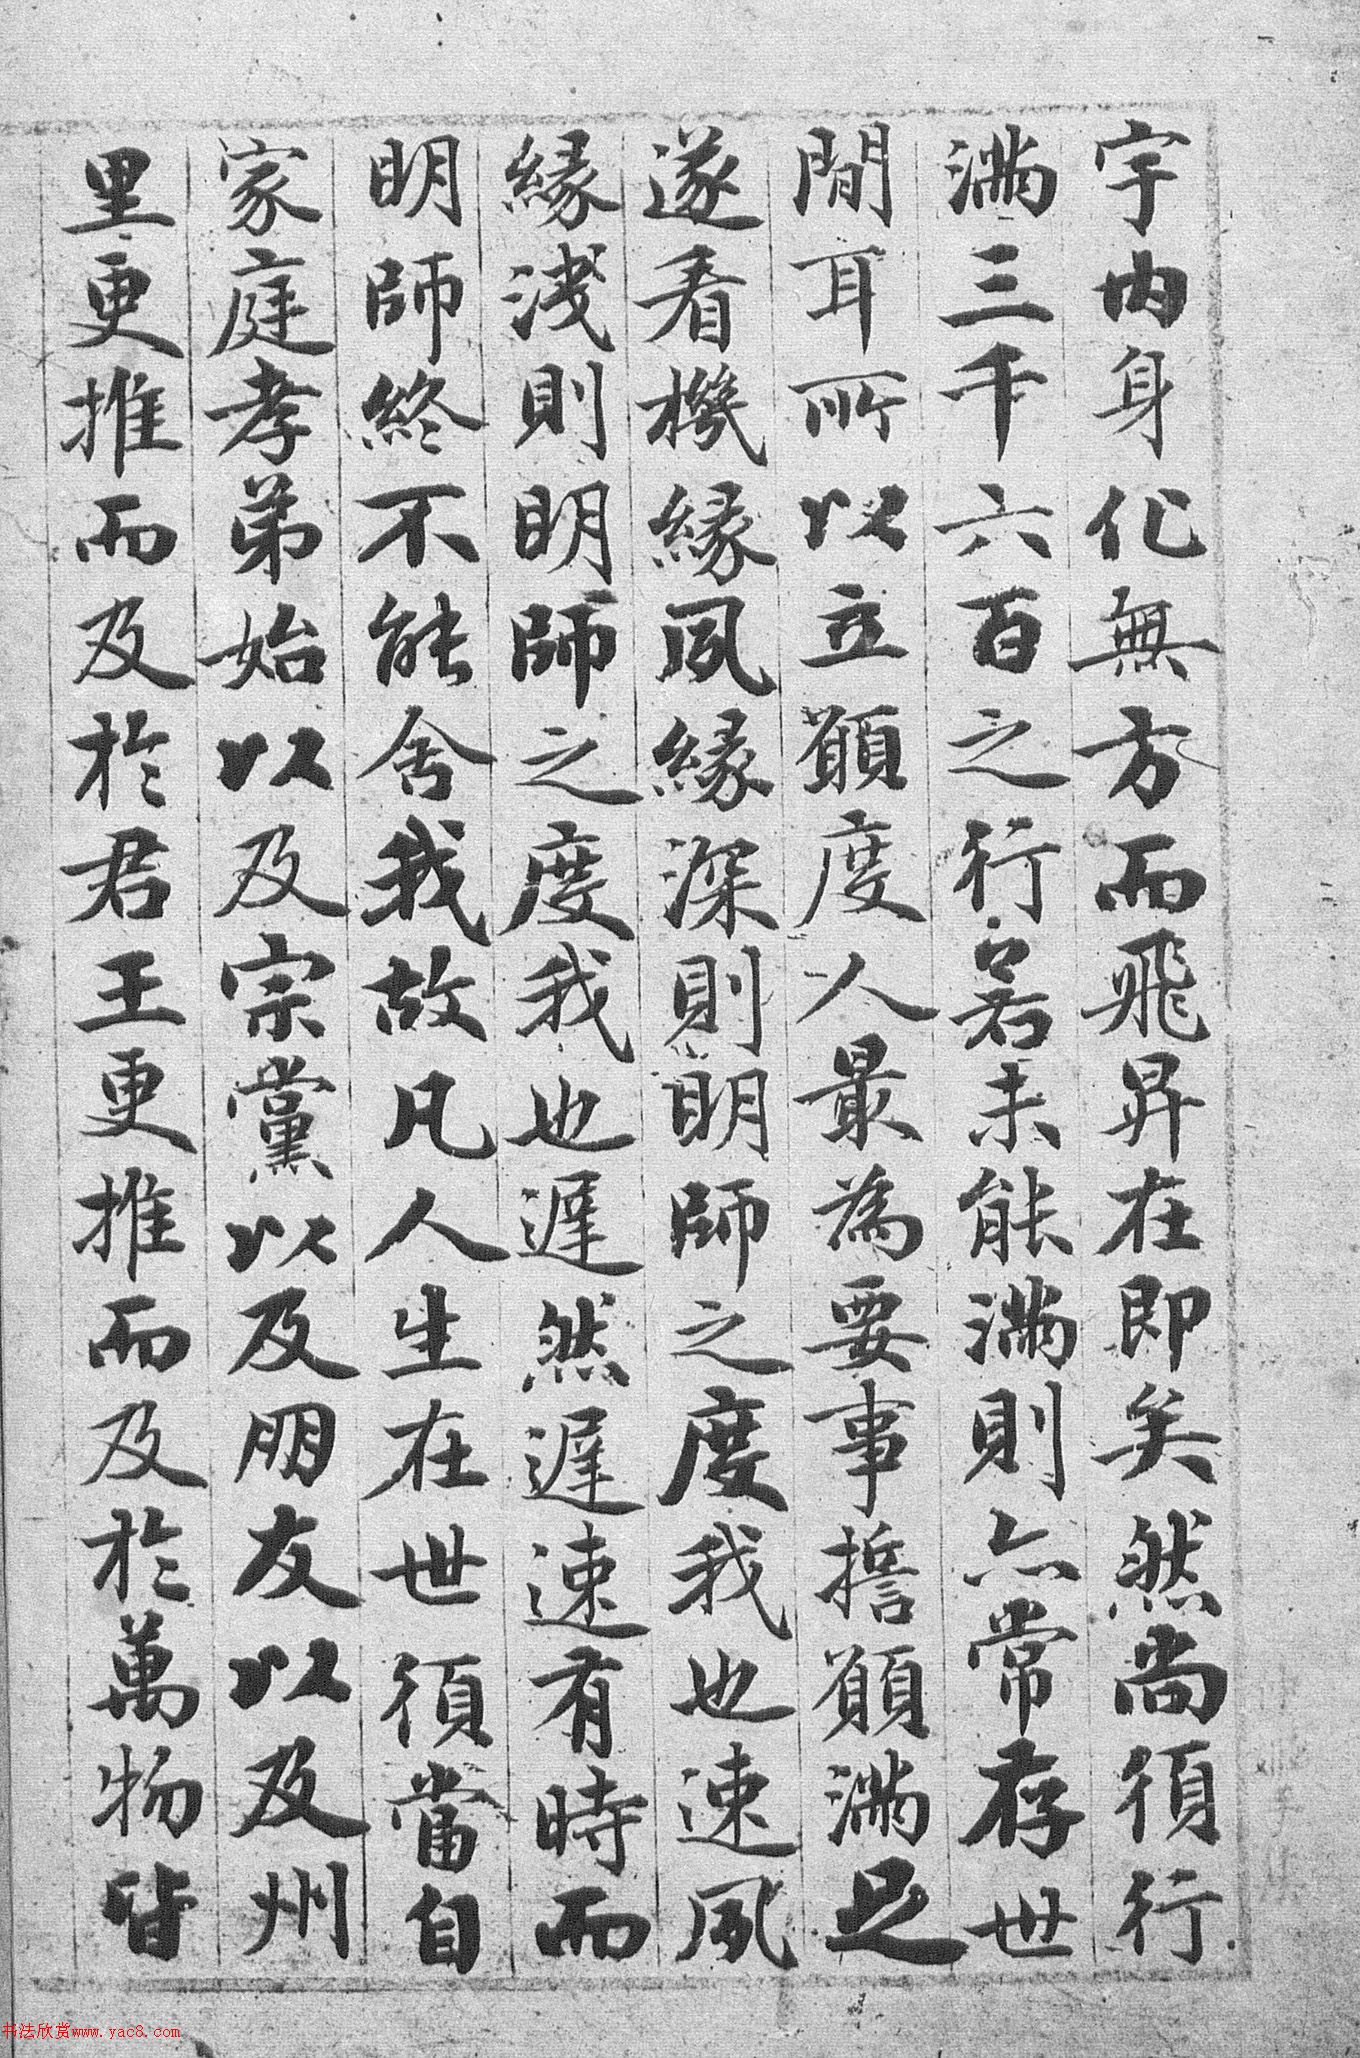 宇內身化無方而飛昇在即矣然尚須行
滿三千六百之行若未能滿則亦常存世
間耳所以立願度人最為要事誓願滿足
遂看機緣夙緣深則明師之度我也速夙
緣淺則明師之度我也遲然遲速有時而
明師終不能舍我故凡人生在世須當自
家庭孝弟始以及宗黨以及朋友以及州
里更推而及於君王更推而及於萬物皆
书法欣赏www.yac8.com